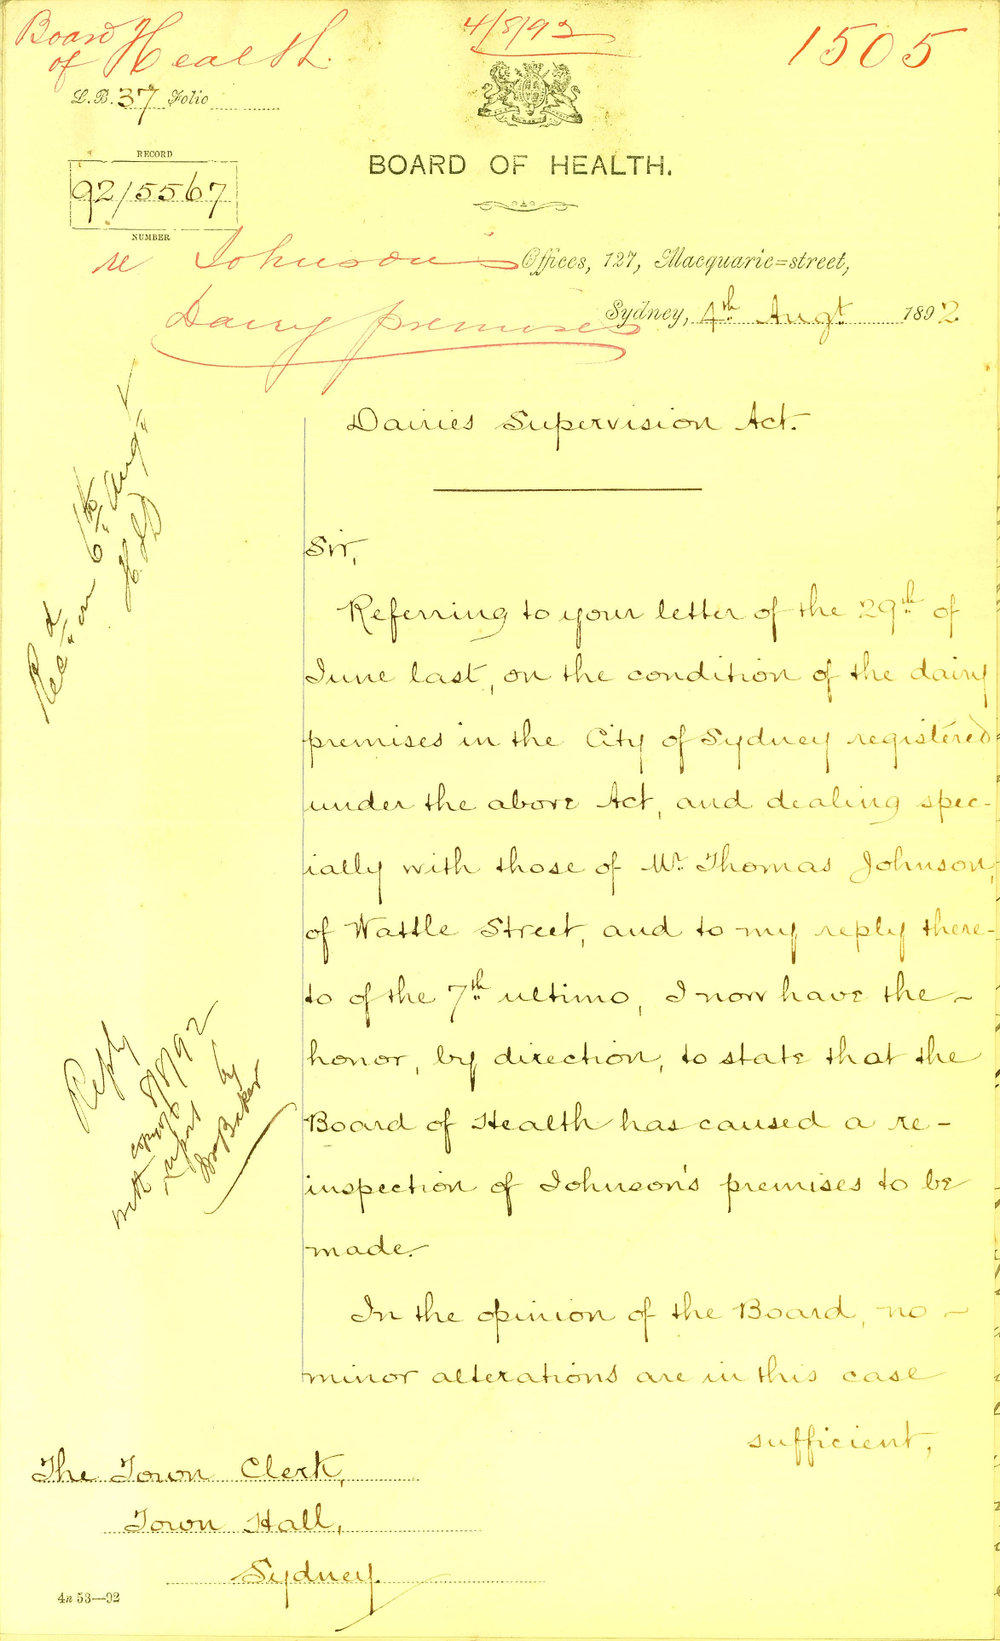 Board
of Health.
4/8/92
1505
L.B. 37 Folio
RECORD
92/5567
NUMBER
BOARD OF HEALTH.
re Johnson's
Dairy premises
Offices, 127, Macquarie=street,
Sydney, 4th Augt 1892.
Recd on 6th Augt
Dairies Supervision Act.
Sir,
Referring to your letter of the 29th of
June last, on the condition of the dairy
premises in the City of Sydney registered
under the above Act, and dealing spec-
ially with those of Mr. Thomas Johnson,
of Wattle Street, and to my reply there-
to of the 7th ultimo, I now have the
honor, by direction, to state that the
Board of Health has caused a re-
inspection of Johnson's premises to be
made.
In the opinion of the Board, no
minor alterations are in this case
sufficient,
Reply 8/8/92
with copy of
report by
Dr Baker
The Town Clerk,
Town Hall,
Sydney.
4a 53—92